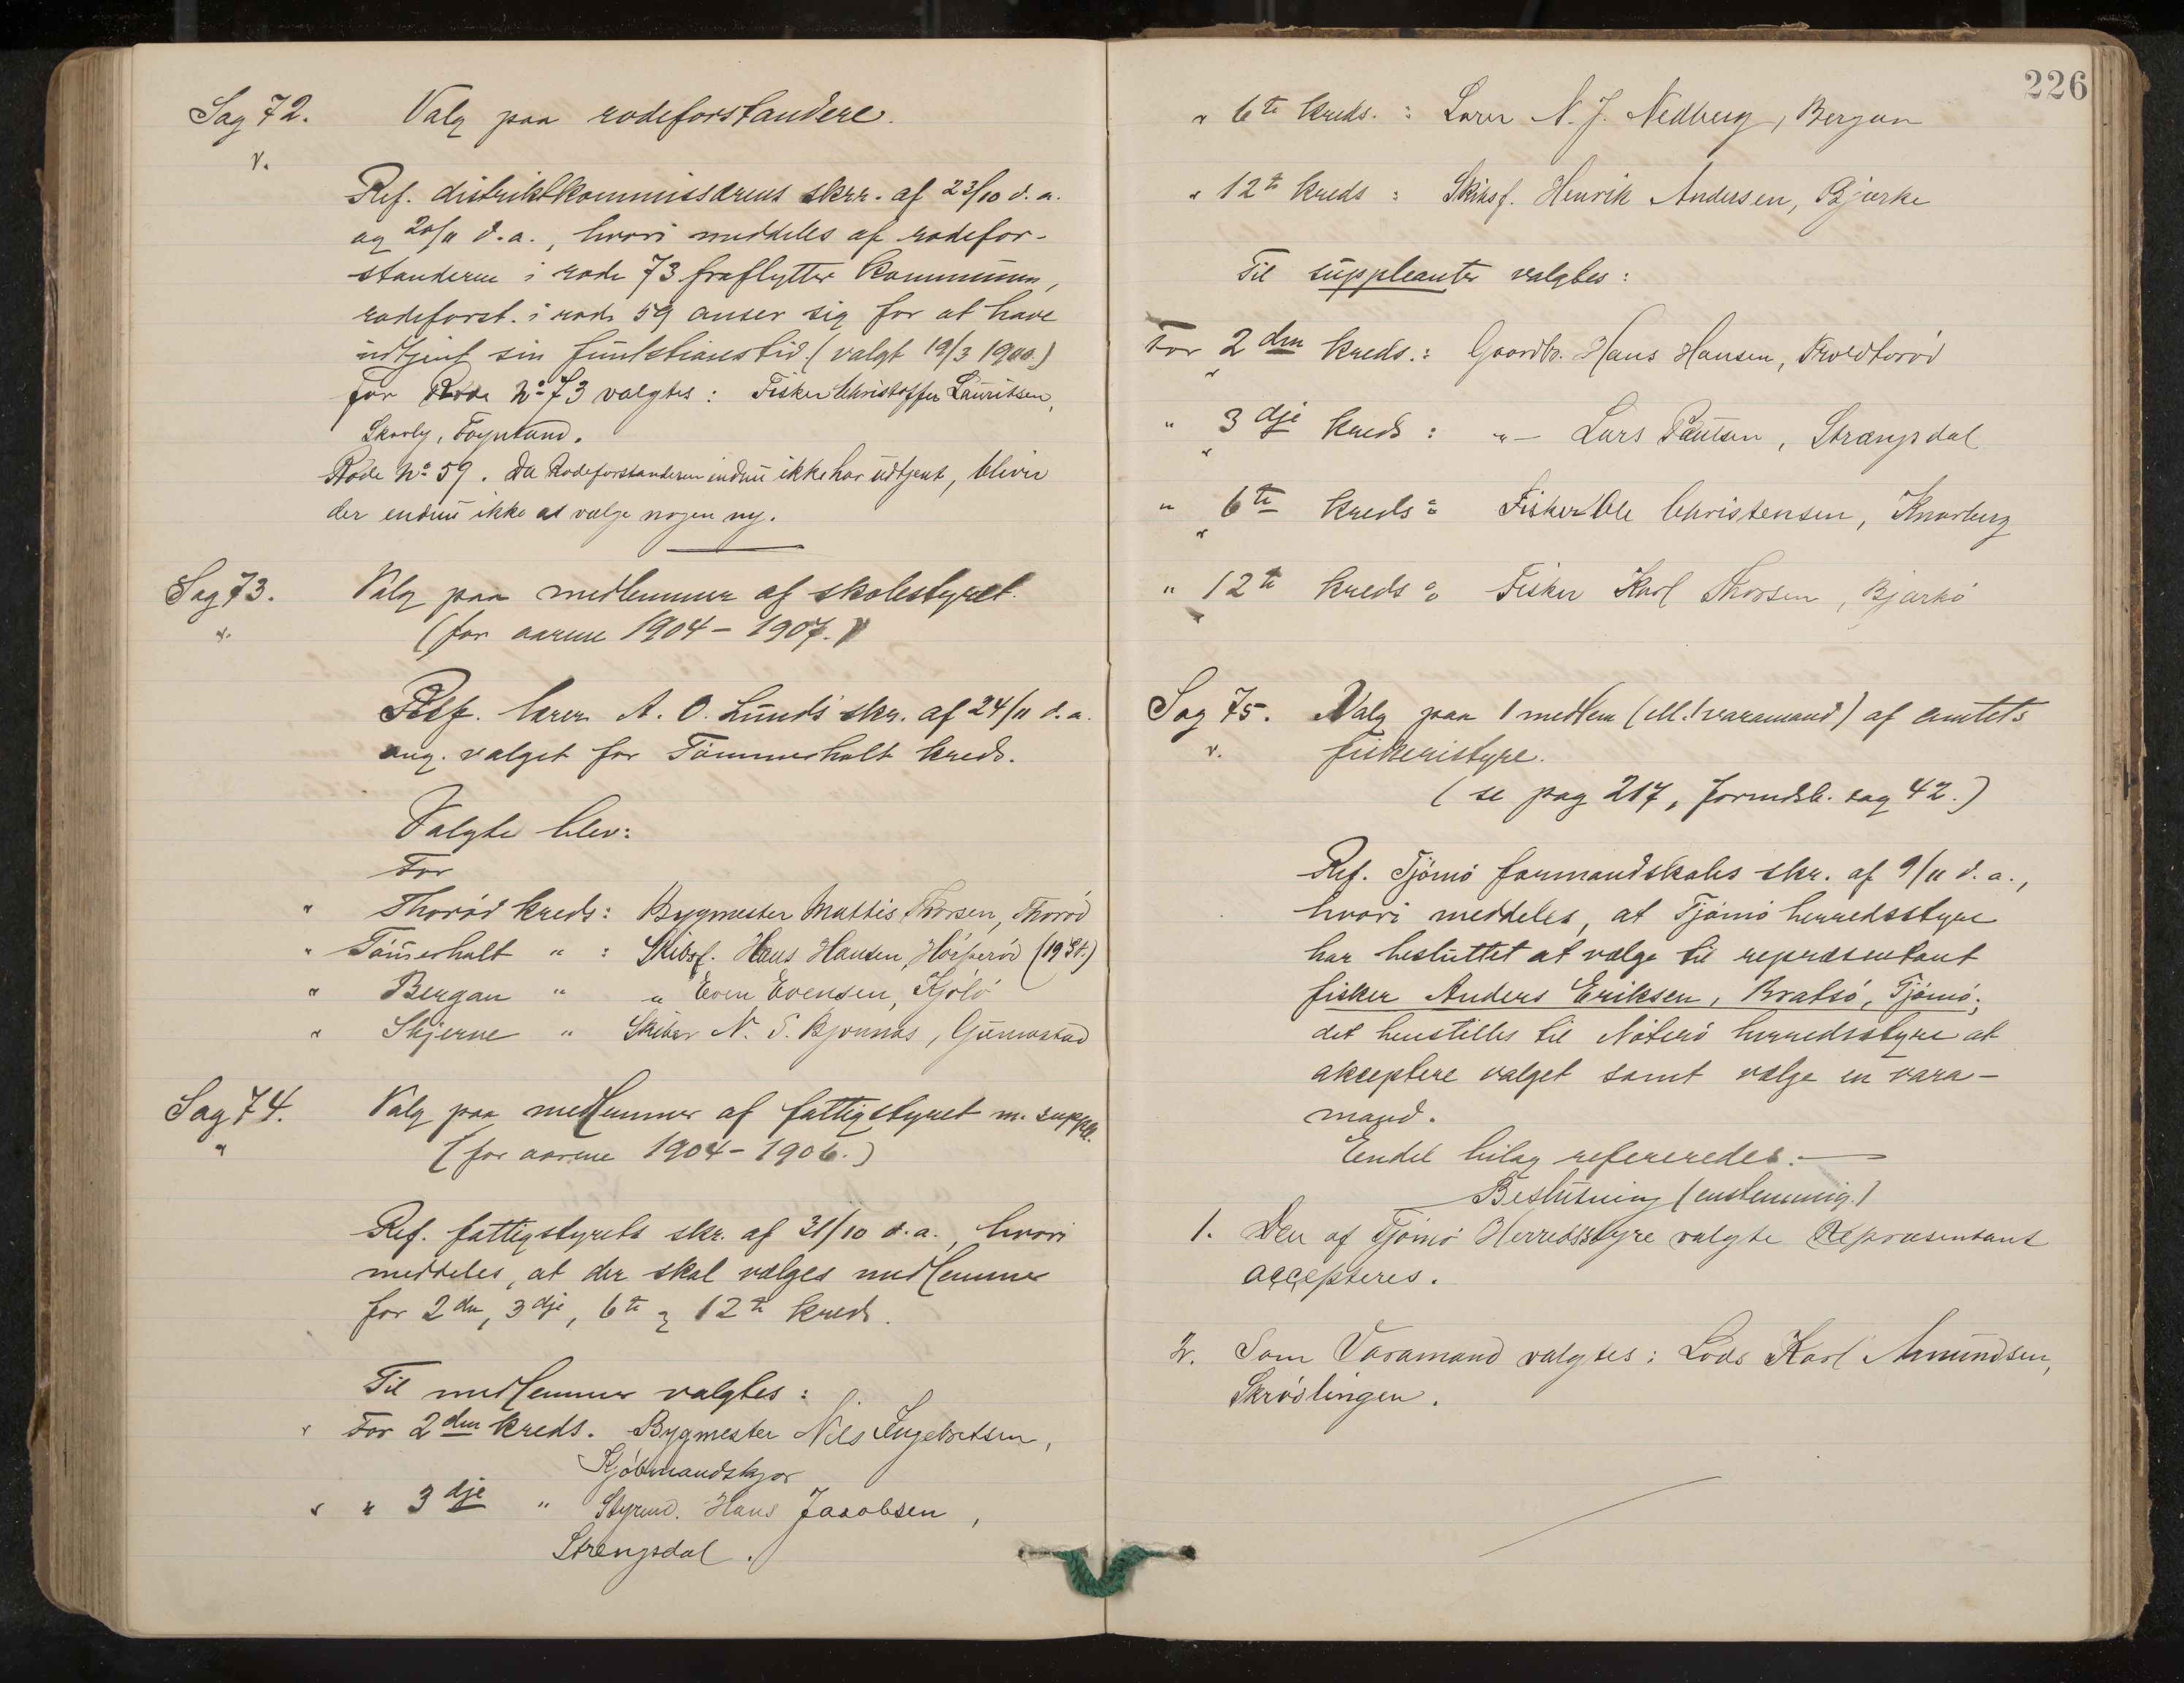 Sag 72. Valg paa rodeforstandere.
v.
Ref. distriktkommissærens skrr. af 23/10 d. a.
og 20/11 d. a., hvori meddeles af rodefor-
standeren i rode 73 fraflytter kommunen,
rodeforst. i rode 59 anser sig for at have
udtjent sin funktionstid. (valgt 19/3 1900.)
For Rode No 73 valgtes: Fisker Christoffer Lauritsen,
Skarby, Föynland.
Rode No 59. Da Rodeforstanderen endnu ikke har udtjent, bliver
der endnu ikke at vælge nogen ny.
Sag 73. Valg paa medlemmer af skolestyret.
v. (for aarene 1904 - 1907.)
Ref. lærer A. O. Lunds skr. af 24/11 d. a.
ang. valget for Tömmerholt kreds.
Valgte blev:
For
" Thoröd kreds: Bygmester Mattis Thorsen, Thoröd
" Töm̄erholt " : Skibsf. Hans Hansen, (19 St.)
" Bergan " " Even Evensen, Kjölö
" Skjerve " Skiber N. S. Bjönnes, Gunnestad
Sag 74. Valg paa medlemmer af fattigstyret m. suppl.
" (for aarene 1904 - 1906.)
Ref. fattigstyrets skr. af 31/10 d. a., hvori
meddeles, at der skal vælges medlemmer
for 2den, 3dje, 6te & 12te kreds.
Til medlemmer valgtes:
" For 2den kreds. Bygmester Nils Ingebretsen,
Kjöbmandskjær
" " 3dje " Styrmd. Hans Jacobsen,
Strengsdal.
226
" 6te kreds. : Lærer N. J. Nedberg, Bergan
" 12te kreds : Skibsf. Henrik Andersen, Bjerke
Til suppleanter valgtes:
For 2den kreds.: Gaardbr. Hans Hansen,
" 3dje kreds : " — Lars Paulsen, Strængsdal
" 6te kreds : Fisker Ole Christensen, Knarberg
" 12te kreds : Fisker Karl Thorsen, Bjerkö
Sag 75. Valg paa 1 medlem (ell. 1 varamand) af amtets
v. fiskeristyre.
(se pag 217, formdsk. sag 42.)
Ref. Tjömö formandskabs skr. af 9/11 d. a.,
hvori meddeles, at Tjömö herredsstyre
har besluttet at vælge til repræsentant
fisker Anders Eriksen, Bratsö, Tjömö;
det henstilles til Nöterö herredsstyre at
akceptere valget samt vælge en vara-
mand.
Endel bilag refereredes. —
Beslutning (enstemmig.)
1. Den af Tjömö Herredsstyre valgte Repræsentant
accepteres.
2. Som Varamand valgtes: Lods Karl Amundsen,
Skröslingen.